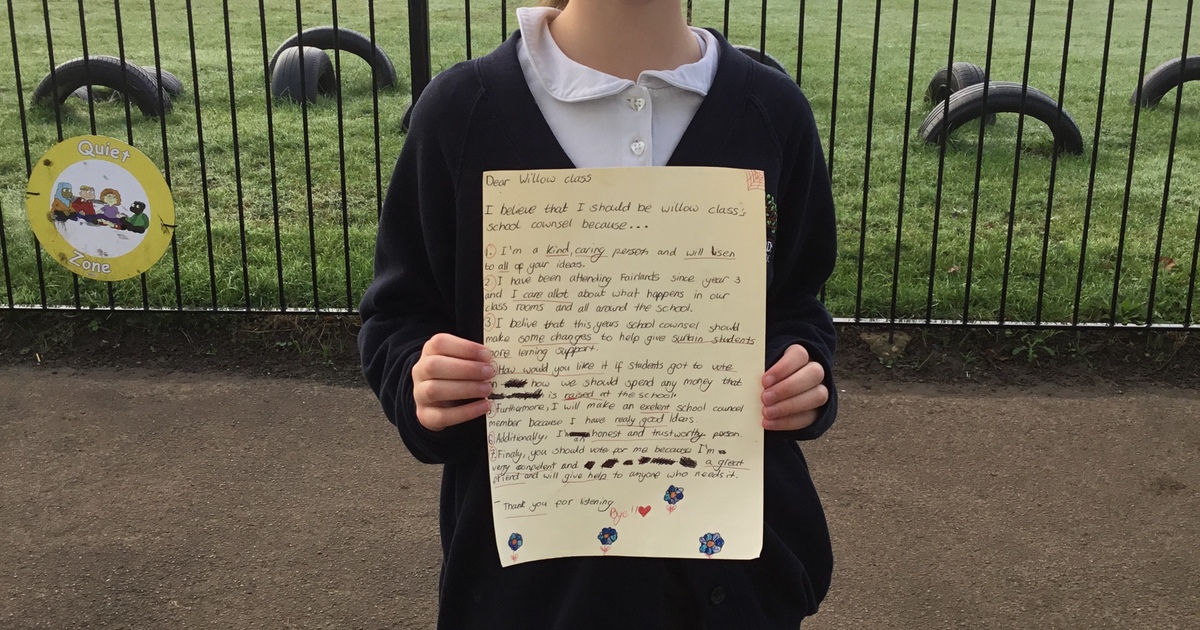 Quiet
Zone
Dear Willow class
I believe that I should be willow class's
school counsel because...
1. I'm a kind, caring person and will lisen
to all of your ideas.
2. I have been attending Fairlands since year 3
and I care allot about what happens in our
class rooms and all around the school.
3 I belive that this years school counsel should
make some changes to help give surtain students
more lerning support.
How would you like it if students got to vote
on how we should spend any money that
is raised at the school?
5. Furthermore, I will make an exelent school councel
member because I have realy good ideas.
6 Additionally, I'm an honest and trustworthy person.
7. Finaly, you should vote for me because I'm
very confident and a great
friend and will give help to anyone who needs it.
- Thank you for listening
Bye!!